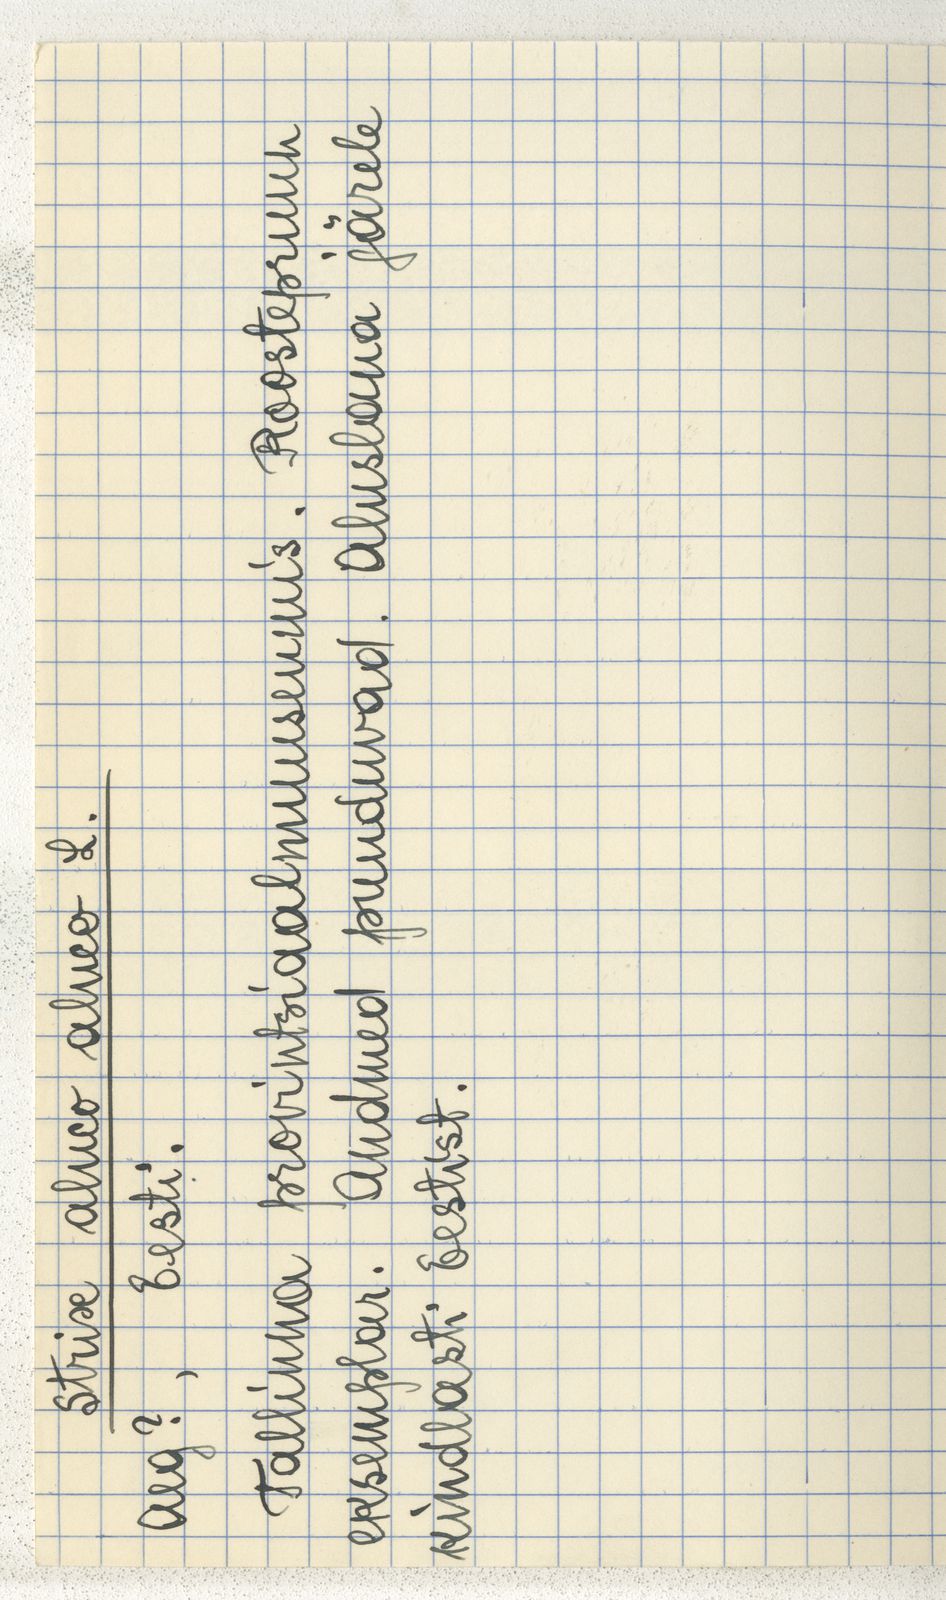 Strix aluco aluco L.
Aeg?, Eesti.
Tallinna provintsiaalmuuseumis. Roostepruun
eksemplar. Andmed puuduvad. Aluslaua järele
kindlasti Eestist.